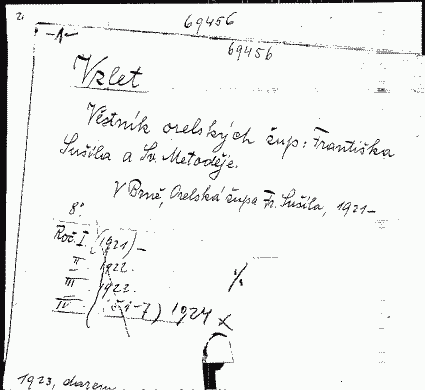 69456
69456
-1-
Vzlet
Věstník orelských žup: Františka
Sušila a Sv. Metoděje.
V Brně, Orelská župa Fr. Sušila, 1921-
8°
Roč. I. (1921)-
II 1922.
III 1922.
IV (č 1-7) 1924 x
1923, darem